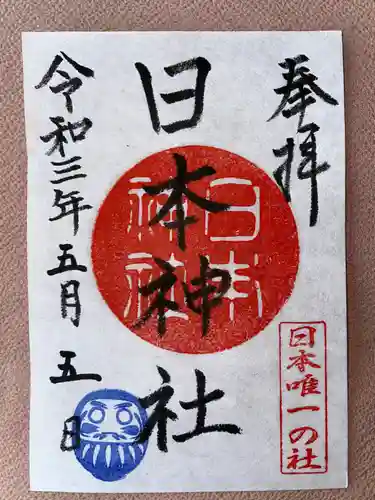 奉拝
日本神社
日本神社
令和三年五月五日
日本唯一の社